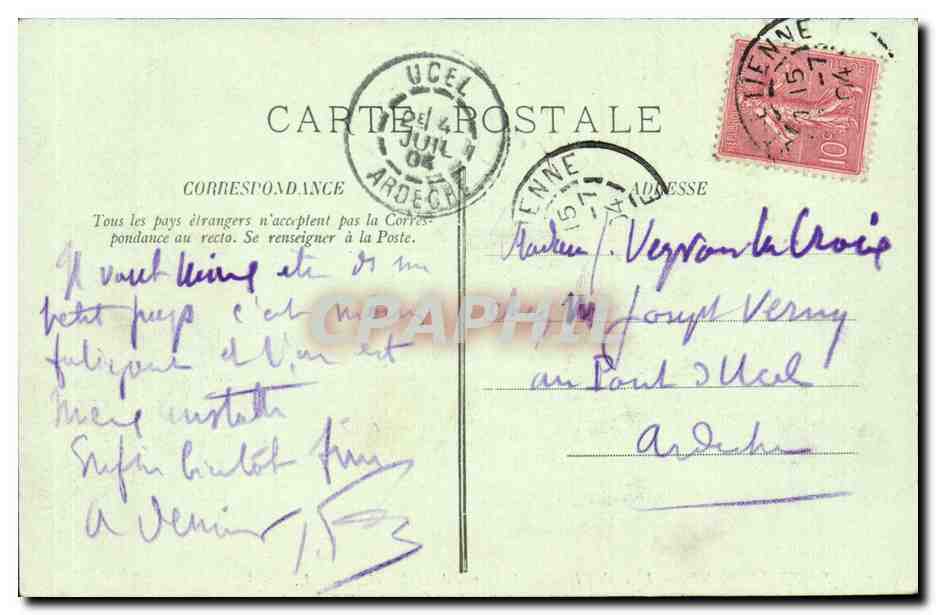 CARTE POSTALE
UCEL
2E / 4
JUIL
04
ARDECHE
TIENNE
15
-7
04
10c
CORRESPONDANCE
Tous les pays étrangers n'acceptent pas la Corres-
pondance au recto. Se renseigner à la Poste.
Il vaut mieux etre ds un
petit pays c'est moins
fatigant et l'on est
mieux
Enfin bientôt fini
A demain
ADRESSE
ETIENNE
15
-7
04
Madame J. Veyron la Croix
M Joseph Verny
au Pont d'Ucel
Ardèche
CPAPHIL